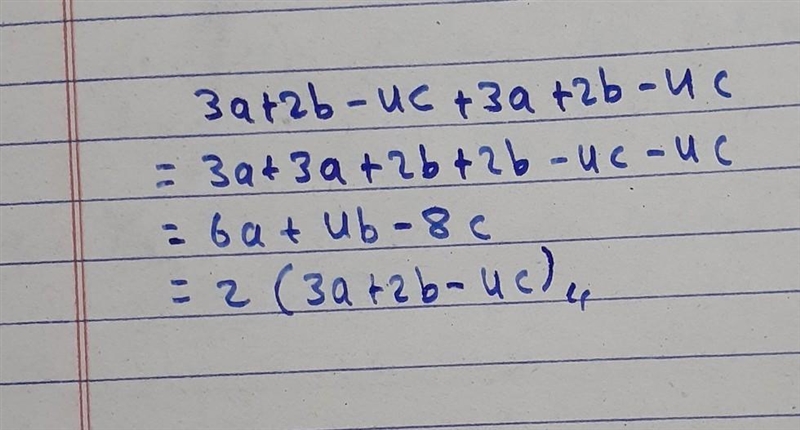 3a+2b-4c+3a+2b-4c
= 3a+3a+2b+2b-4c-4c
= 6a+4b-8c
= 2(3a+2b-4c)